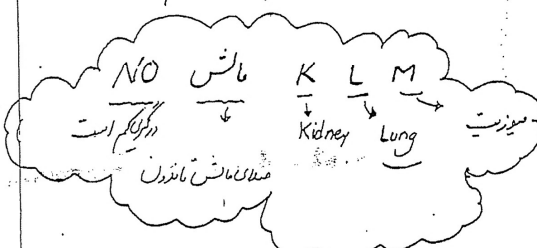 NO مالش K L M
درگیری کم است Kidney Lung میوزیت
صدای مالش تاندون